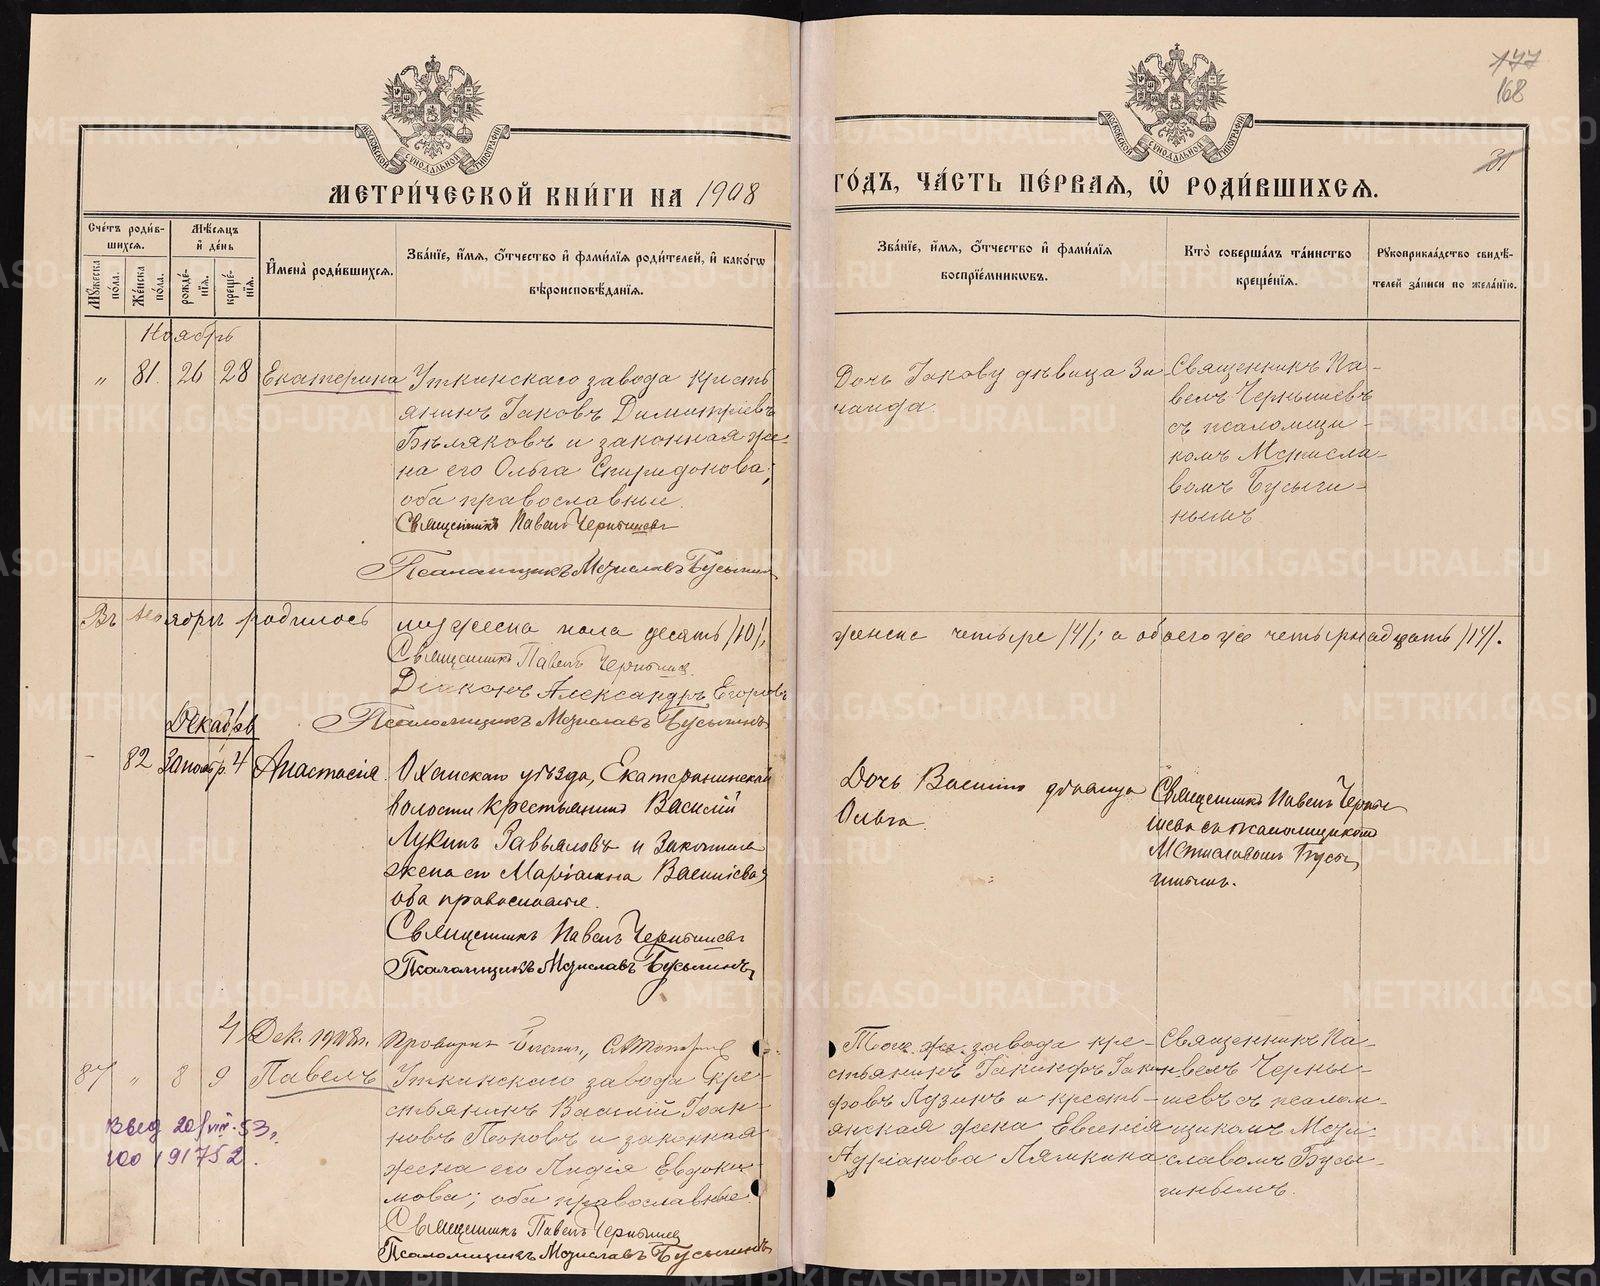 177
168
31
МОСКОВСКОЙ СѴНОДАЛЬНОЙ ТИПОГРАФІИ
МОСКОВСКОЙ СѴНОДАЛЬНОЙ ТИПОГРАФІИ
МЕТРИ́ЧЕСКОЙ КНИ́ГИ НА 1908
ГО́ДЪ, ЧА́СТЬ ПЕ́РВАЯ, Ѡ҆ РОДИ́ВШИХСЯ.
Сче́тъ роди́в-
шихся.
Мѣ́сяцъ
и҆ де́нь
Мꙋ́жеска
по́ла.
Же́нска
по́ла.
рожде́-
нїя.
креще́-
нїя.
И҆мена̀ роди́вшихся.
Зва́нїе, и҆́мя, ѻ҆́тчество и҆ фами́лїя роди́телей, и҆ како́гѡ
вѣроисповѣ́данїя.
Зва́нїе, и҆́мя, ѻ҆́тчество и҆ фами́лїя
воспрїе́мникѡвъ.
Кто̀ соверша́лъ та́инство
креще́нїя.
Рꙋкоприкла́дство свидѣ́-
телей за́писи по жела́нїю.
Ноябрь
" 81. 26 28 Екатерина
Уткинскаго завода кресть
янинъ Іаковъ Димитріевъ
Бѣляковъ и законная же-
на его Ольга Спиридонова;
оба православные.
Священникъ Павелъ Чернышевъ
Псаломщикъ Мстиславъ Бусыгинъ
Дочь Іакову дѣвица Зи
наида.
Священникъ Па-
велъ Чернышевъ
съ псаломщи-
комъ Мстисла-
вомъ Бусыги-
нымъ
Въ ноябрѣ родилось мужеска пола десять /10/,
женск. четыре /4/; а обоего же четырнадцать /14/.
Священникъ Павелъ Чернышев
Діаконъ Александръ Егоровъ
Псаломщикъ Мстиславъ Бусыгинъ
Декабрь
- 82 30 ноябр. 4 Анастасія
Оханскаго уѣзда, Екатерининской
волости крестьянинъ Василій
Лукинъ Завьяловъ и законная
жена его Маріанна Васильева,
оба православные.
Священникъ Павелъ Чернышевъ
Псаломщикъ Мстиславъ Бусыгинъ
Дочь Василія дѣвица
Ольга.
Священникъ Павелъ Черны
шевъ съ псаломщикомъ
Мстиславомъ Бусы
гинымъ.
4 Дек. 1908 г.
87 " 8 9 Павелъ
Уткинскаго завода кре-
стьянинъ Василій Іоан-
новъ Поповъ и законная
жена его Лидія Евдоки-
мова; оба православные
Священникъ Павелъ Чернышев
Псаломщикъ Мстиславъ Бусыгинъ
Того же завода кре-
стьянинъ Іакинфъ Іакин
фовъ Лузинъ и кресть-
янская жена Евгенія
Адріанова Лямкина
Священникъ Па-
велъ Черны-
шевъ съ псалом-
щикомъ Мсти-
славомъ Бусы-
гинымъ.
METRIKI.GASO-URAL.RU